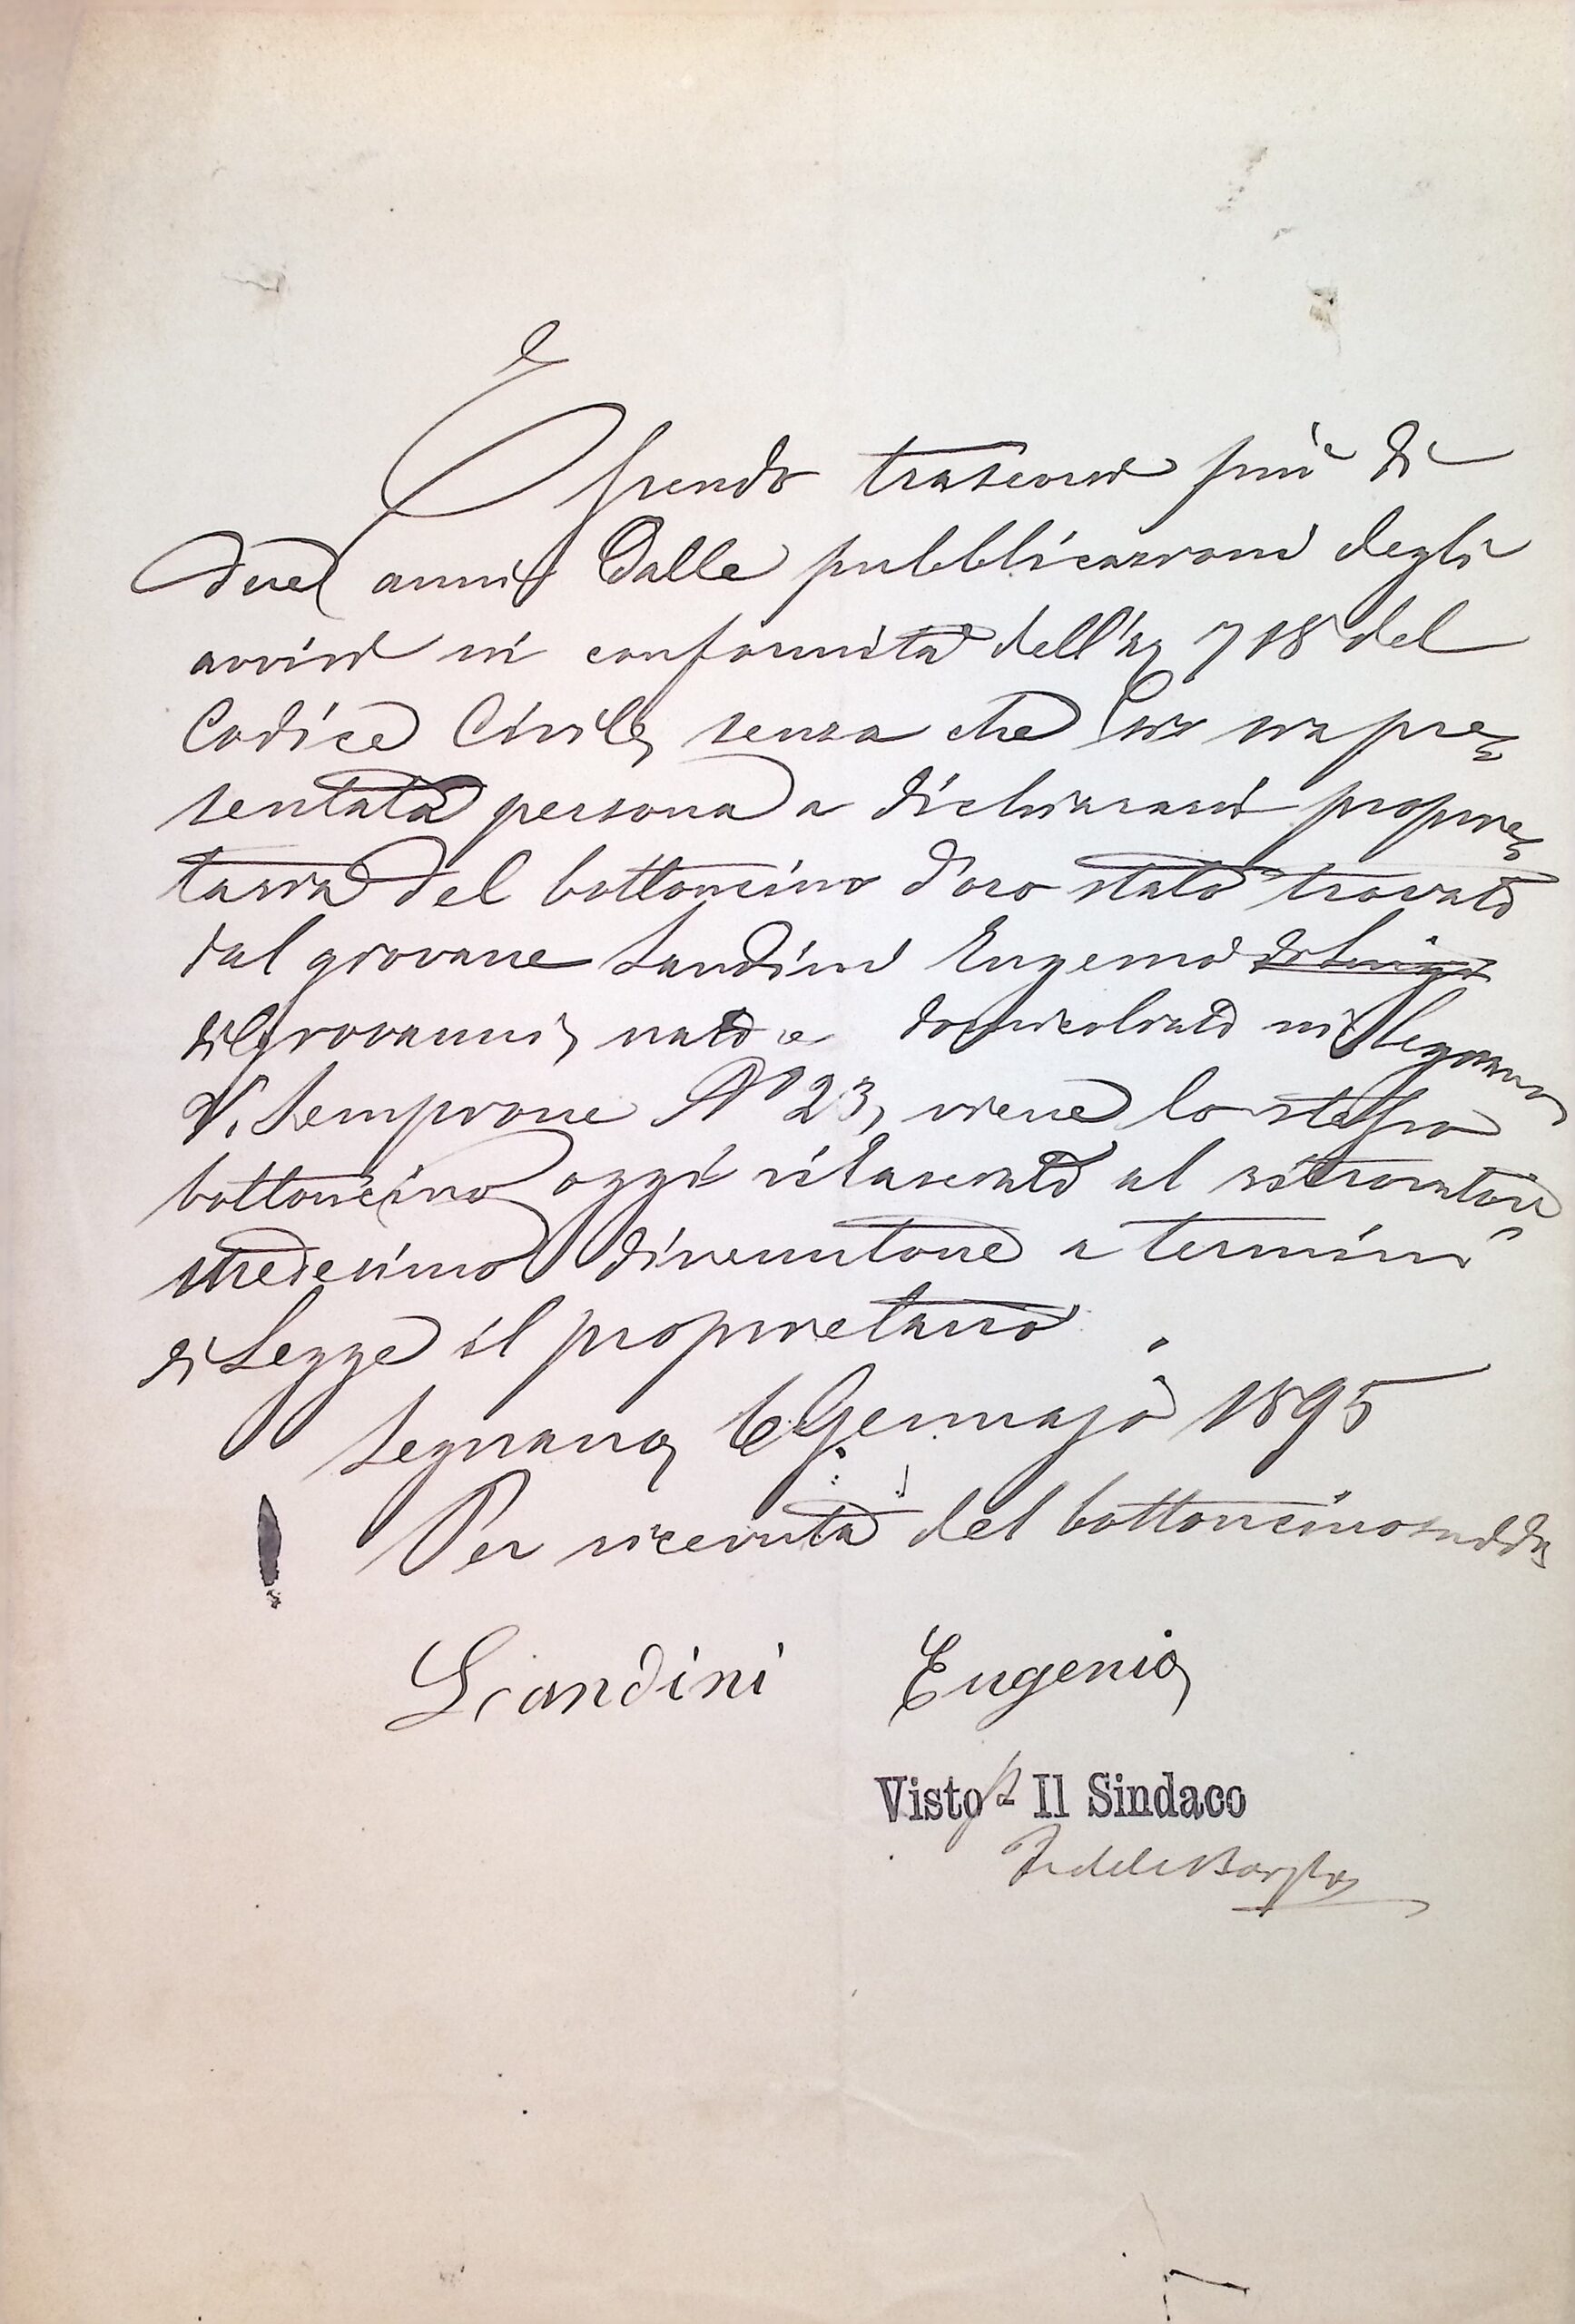 Essendo trascorsi più di
due anni dalle pubblicazioni degli
avvisi in conformità dell'a. 718 del
Codice Civile, senza che siasi pre=
sentata persona a dichiararsi proprie=
taria del bottoncino d'oro stato trovato
dal giovane Landini Eugenio di Luigi
di Giovanni, nato e domiciliato in Legnano
V. Sempione N° 23, viene lo stesso
bottoncino oggi rilasciato al ritrovatore
medesimo divenutone a termini
di Legge il proprietario.
Legnano, 6 Gennajo 1895
Per ricevuta del bottoncino sudd.
Landini Eugenio
Visto p Il Sindaco
Fedele Borghi